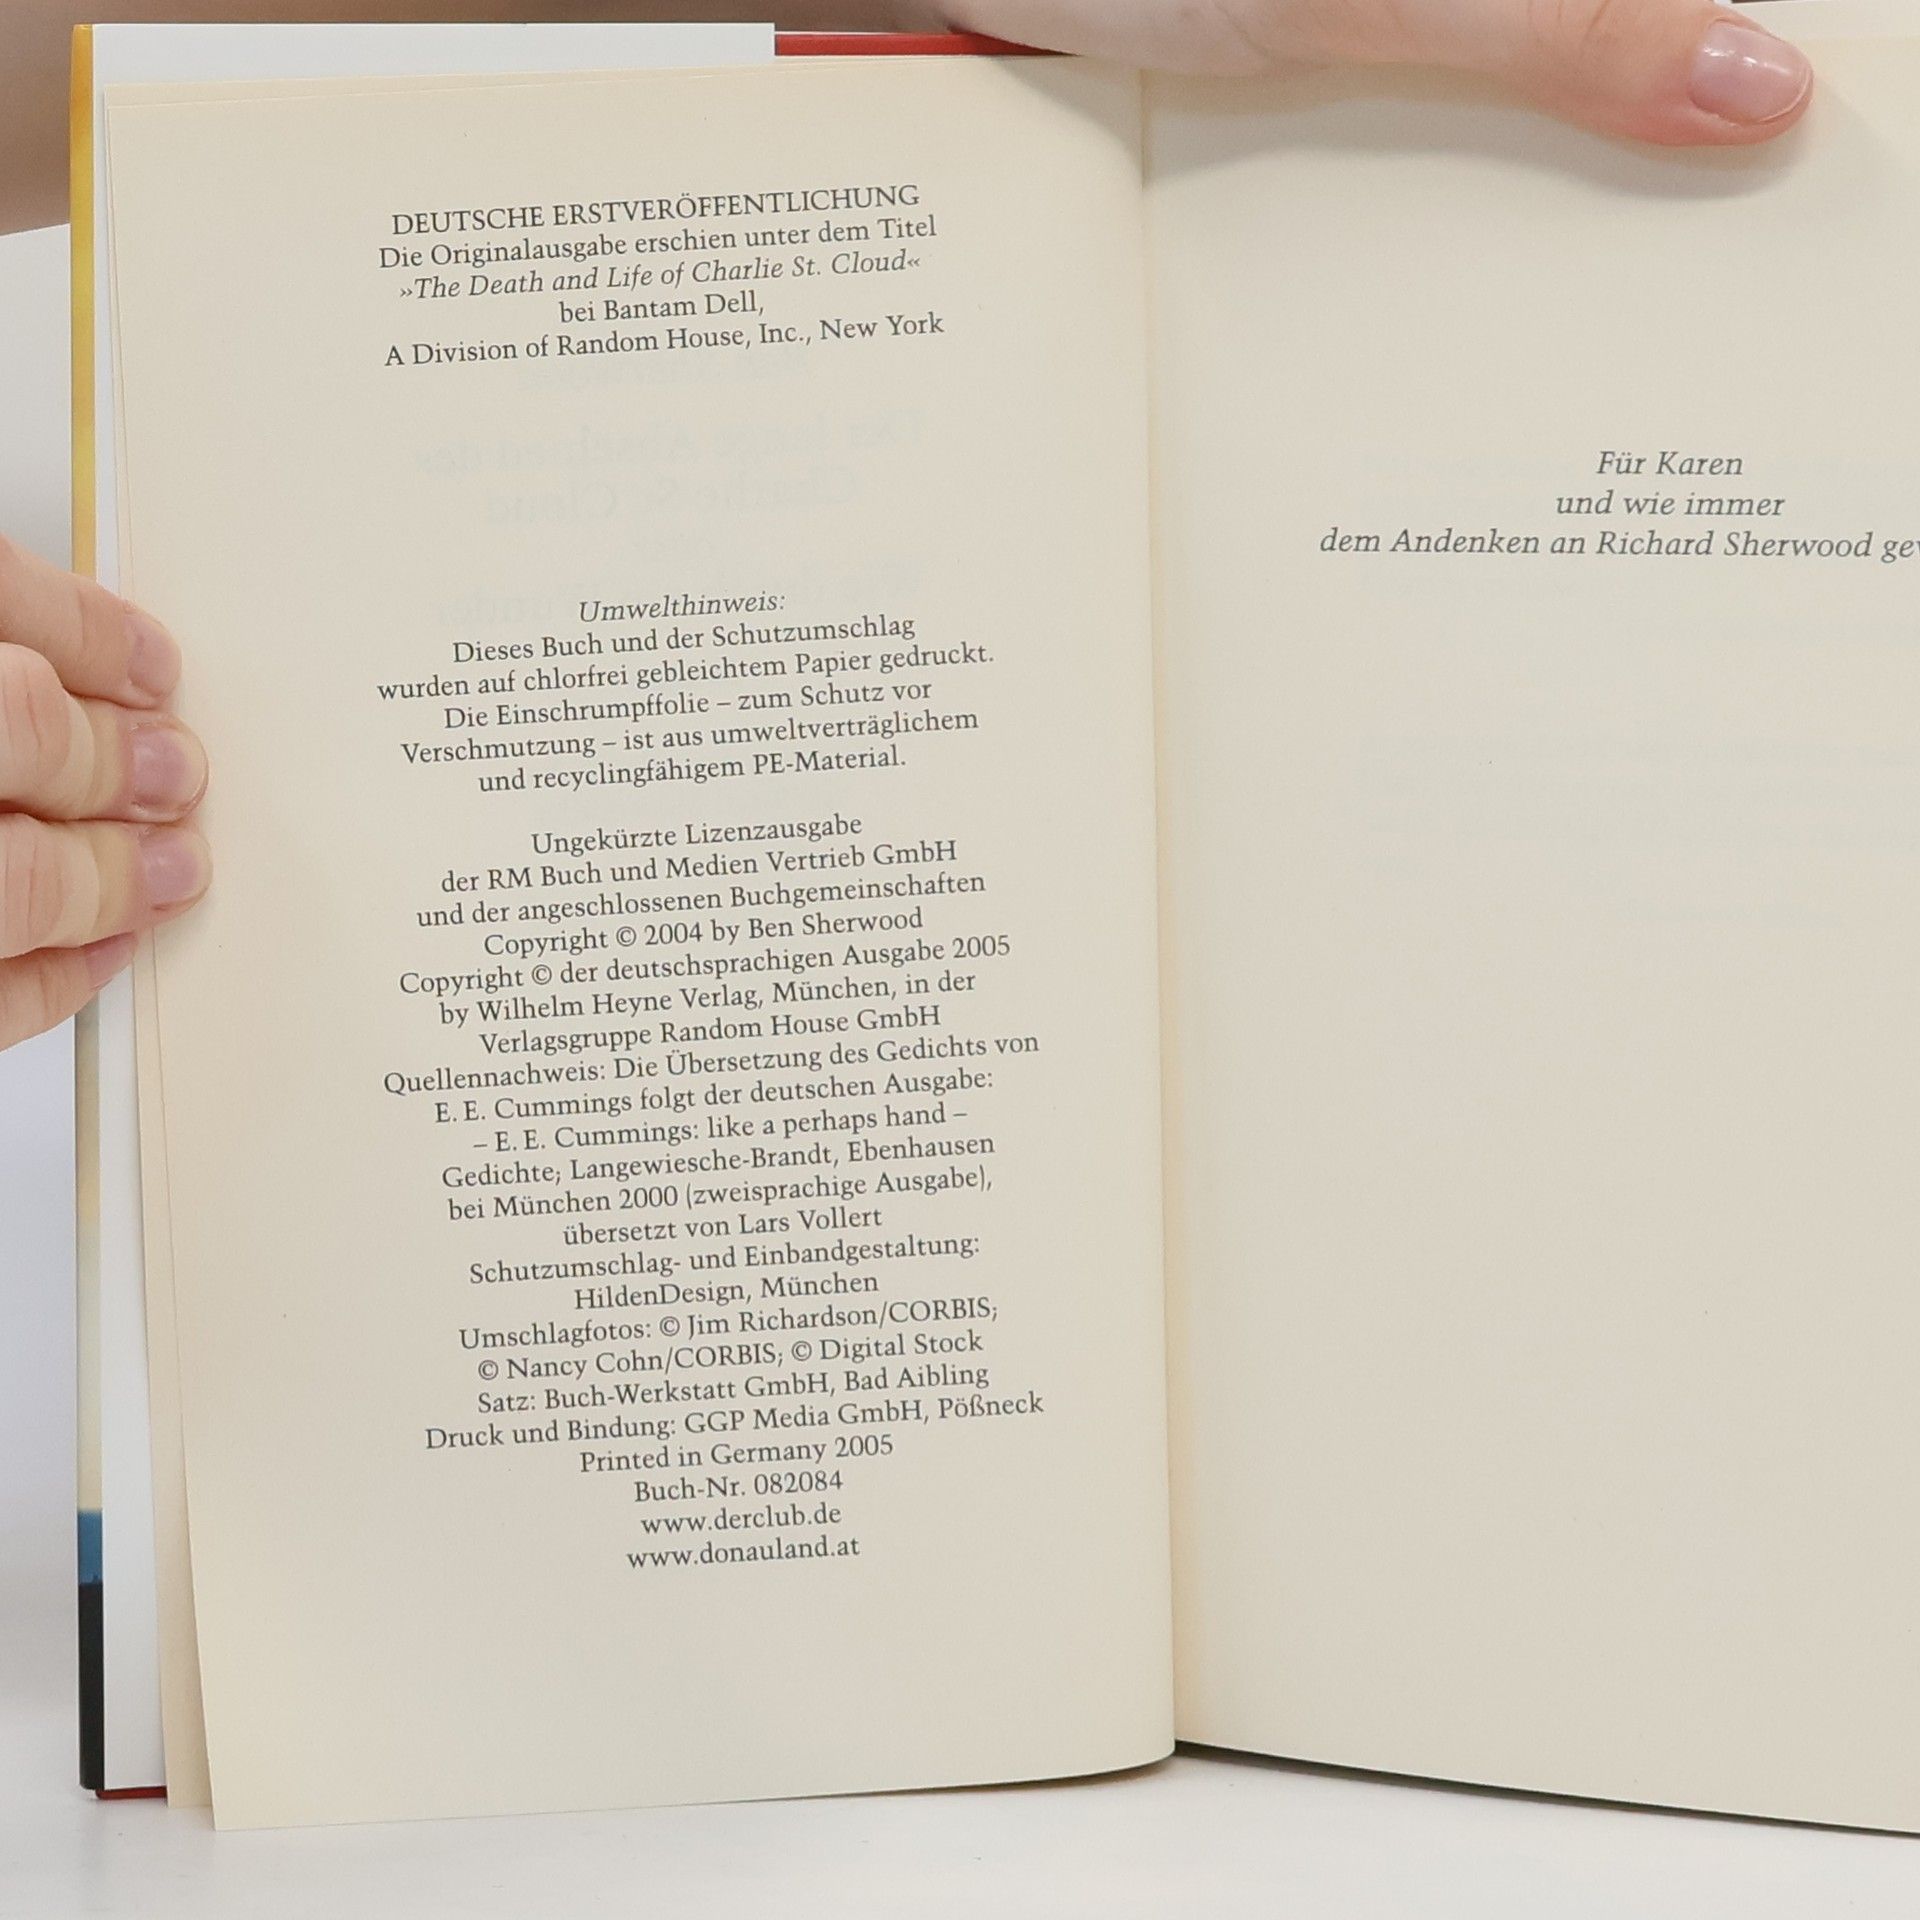 DEUTSCHE ERSTVERÖFFENTLICHUNG
Die Originalausgabe erschien unter dem Titel
»The Death and Life of Charlie St. Cloud«
bei Bantam Dell,
A Division of Random House, Inc., New York
Umwelthinweis:
Dieses Buch und der Schutzumschlag
wurden auf chlorfrei gebleichtem Papier gedruckt.
Die Einschrumpffolie – zum Schutz vor
Verschmutzung – ist aus umweltverträglichem
und recyclingfähigem PE-Material.
Ungekürzte Lizenzausgabe
der RM Buch und Medien Vertrieb GmbH
und der angeschlossenen Buchgemeinschaften
Copyright © 2004 by Ben Sherwood
Copyright © der deutschsprachigen Ausgabe 2005
by Wilhelm Heyne Verlag, München, in der
Verlagsgruppe Random House GmbH
Quellennachweis: Die Übersetzung des Gedichts von
E. E. Cummings folgt der deutschen Ausgabe:
– E. E. Cummings: like a perhaps hand –
Gedichte; Langewiesche-Brandt, Ebenhausen
bei München 2000 (zweisprachige Ausgabe),
übersetzt von Lars Vollert
Schutzumschlag- und Einbandgestaltung:
HildenDesign, München
Umschlagfotos: © Jim Richardson/CORBIS;
© Nancy Cohn/CORBIS; © Digital Stock
Satz: Buch-Werkstatt GmbH, Bad Aibling
Druck und Bindung: GGP Media GmbH, Pößneck
Printed in Germany 2005
Buch-Nr. 082084
www.derclub.de
www.donauland.at
Für Karen
und wie immer
dem Andenken an Richard Sherwood